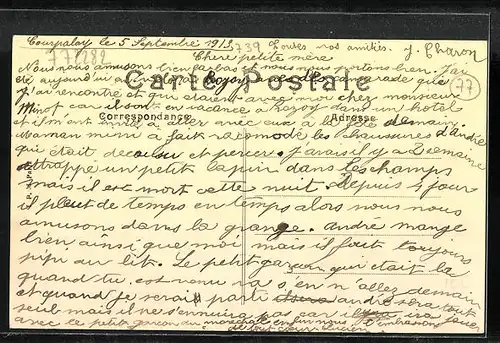 Courpalay le 5 Septembre 1913 739 Toutes nos amitiés. J. Charon
772282
Chère petite mère
Nous nous amusons bien là bas et nous nous portons bien. J'ai
été aujourd'hui à Rozoy camarade que
Carte Postale
77
j'ai rencontré et qui étaient avec moi chez monsieur
Minot car ils sont en vacance à Rozoy dans un hôtel
Correspondance
Adresse
et il m'ont invité à aller avec eux à la fête demain.
Maman mimi a fait racomodé les chaussures d'André
qui était décousu et percer. J'avais il y a 1 semaine
attrappé un petit lapin dans les champs
mais il est mort cette nuit. Depuis 4 jour
il pleut de temps en temps alors nous nous
amusons dans la grange. André mange
bien ainsi que moi mais il fait toujours
pipi au lit. Le petit garçon qui était là
quand tu est venu va s'en n'allez demain
et quand je serai parti André sera tout
seul mais il ne s'ennuira pas car il ira jouer
avec le petit garçon du maréchal
de tout cœur Lucien